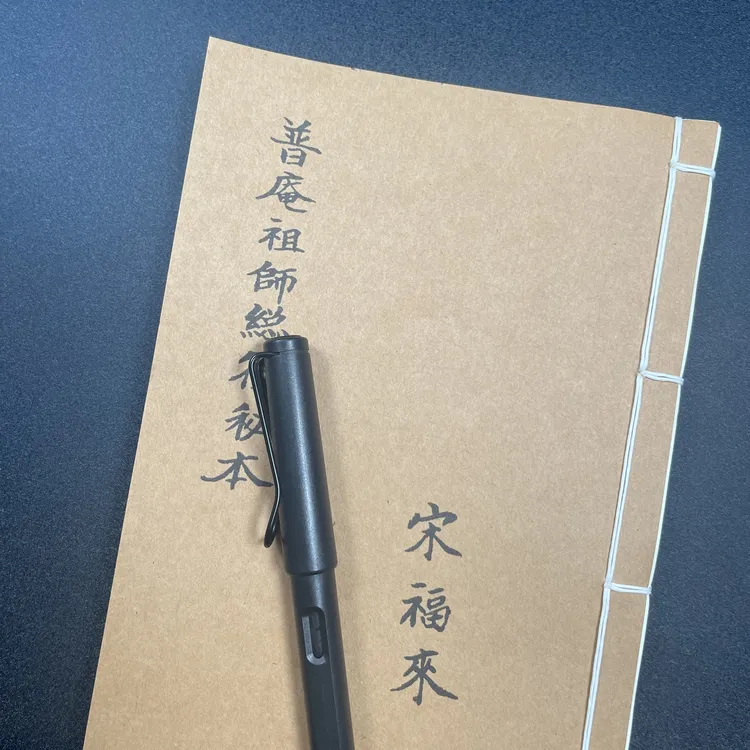 普庵祖師総秘本
宋福來